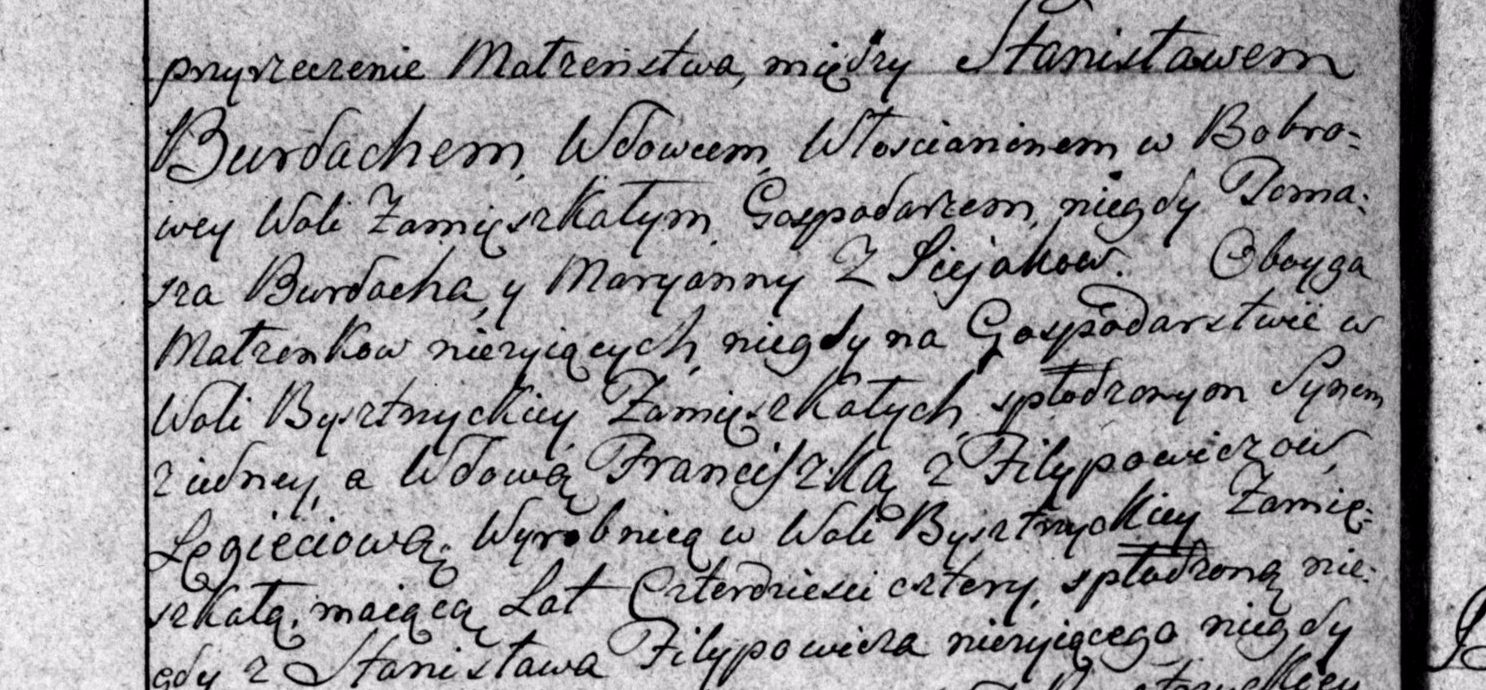 przyrzeczenie Małżeństwa, między Stanisławem
Burdachem, Wdowcem, Włoscianinem w Bobro-
wey Woli Zamięszkałym, Gospodarzem, niegdy Toma-
sza Burdacha, y Maryanny Z Siejakow. Oboyga
Małżonkow nieżyiących, niegdy na Gospodarstwie w
Woli Bysztnyckiey Zamięszkałych, spłodzonym Synem
z iedney, a Wdową Franciszką z Filypowiczow,
Lęgięciową, Wyrobnicą w Woli Bysztnyckiey Zamię-
szkałą, maiącą Lat Czterdziesci cztery, spłodzoną nie-
gdy z Stanisława Filypowicza nieżyiącego niegdy